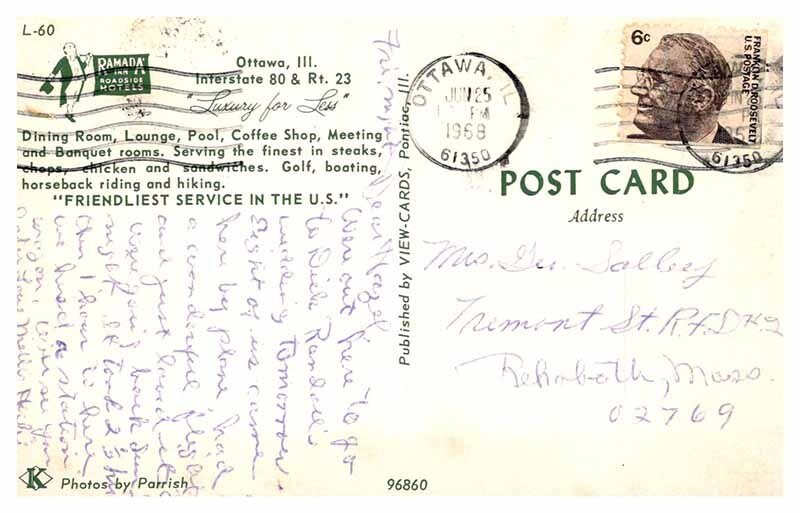 L-60
RAMADA
INN
ROADSIDE
HOTELS
Ottawa, Ill.
Interstate 80 & Rt. 23
"Luxury for Less"
Dining Room, Lounge, Pool, Coffee Shop, Meeting
and Banquet rooms. Serving the finest in steaks,
chops, chicken and sandwiches. Golf, boating,
horseback riding and hiking.
"FRIENDLIEST SERVICE IN THE U.S."
Dear Hazel
Were out here to go
to Dick Randall's
wedding tomorrow.
Eight of us came
here by plane, had
a wonderful flight
and just loved it
back Sun
night. It took 2 hrs
1 hour in here
we had a station
wagon.
K Photos by Parrish
Published by VIEW-CARDS, Pontiac, Ill.
96860
OTTAWA, IL
JUN 25
PM
1968
61350
6c
FRANKLIN D. ROOSEVELT
U.S. POSTAGE
61350
POST CARD
Address
Mrs. Geo. Salley
Tremont St. R.F.D #2
Rehoboth, Mass.
02769